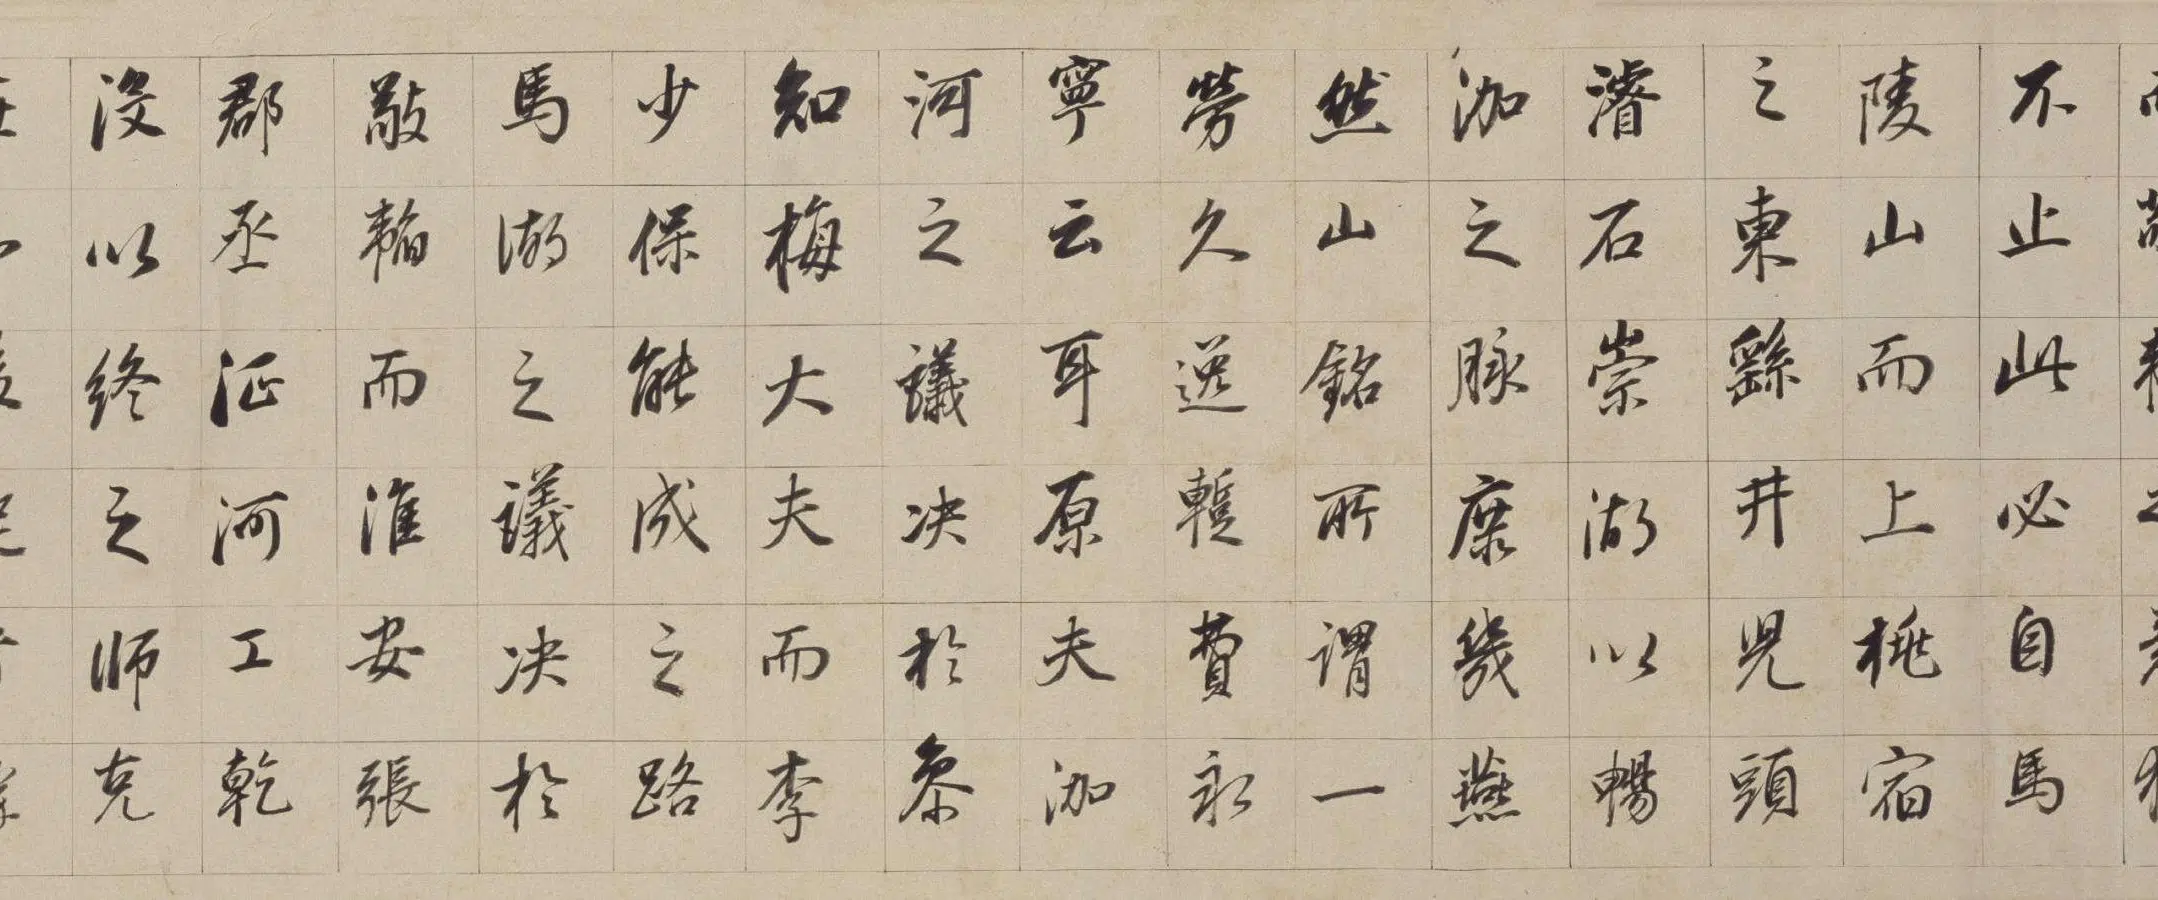 不止此必自馬
陵山而上桃宿
之東繇井兒頭
濬石崇湖以暢
泇之脉庶幾燕
然山銘所謂一
勞久逸暫費永
寧云耳原夫泇
河之議決於參
知梅大夫而李
少保能成之路
馬湖之議決於
敲韜而淮安張
郡丞征河工乾
沒以終之師克